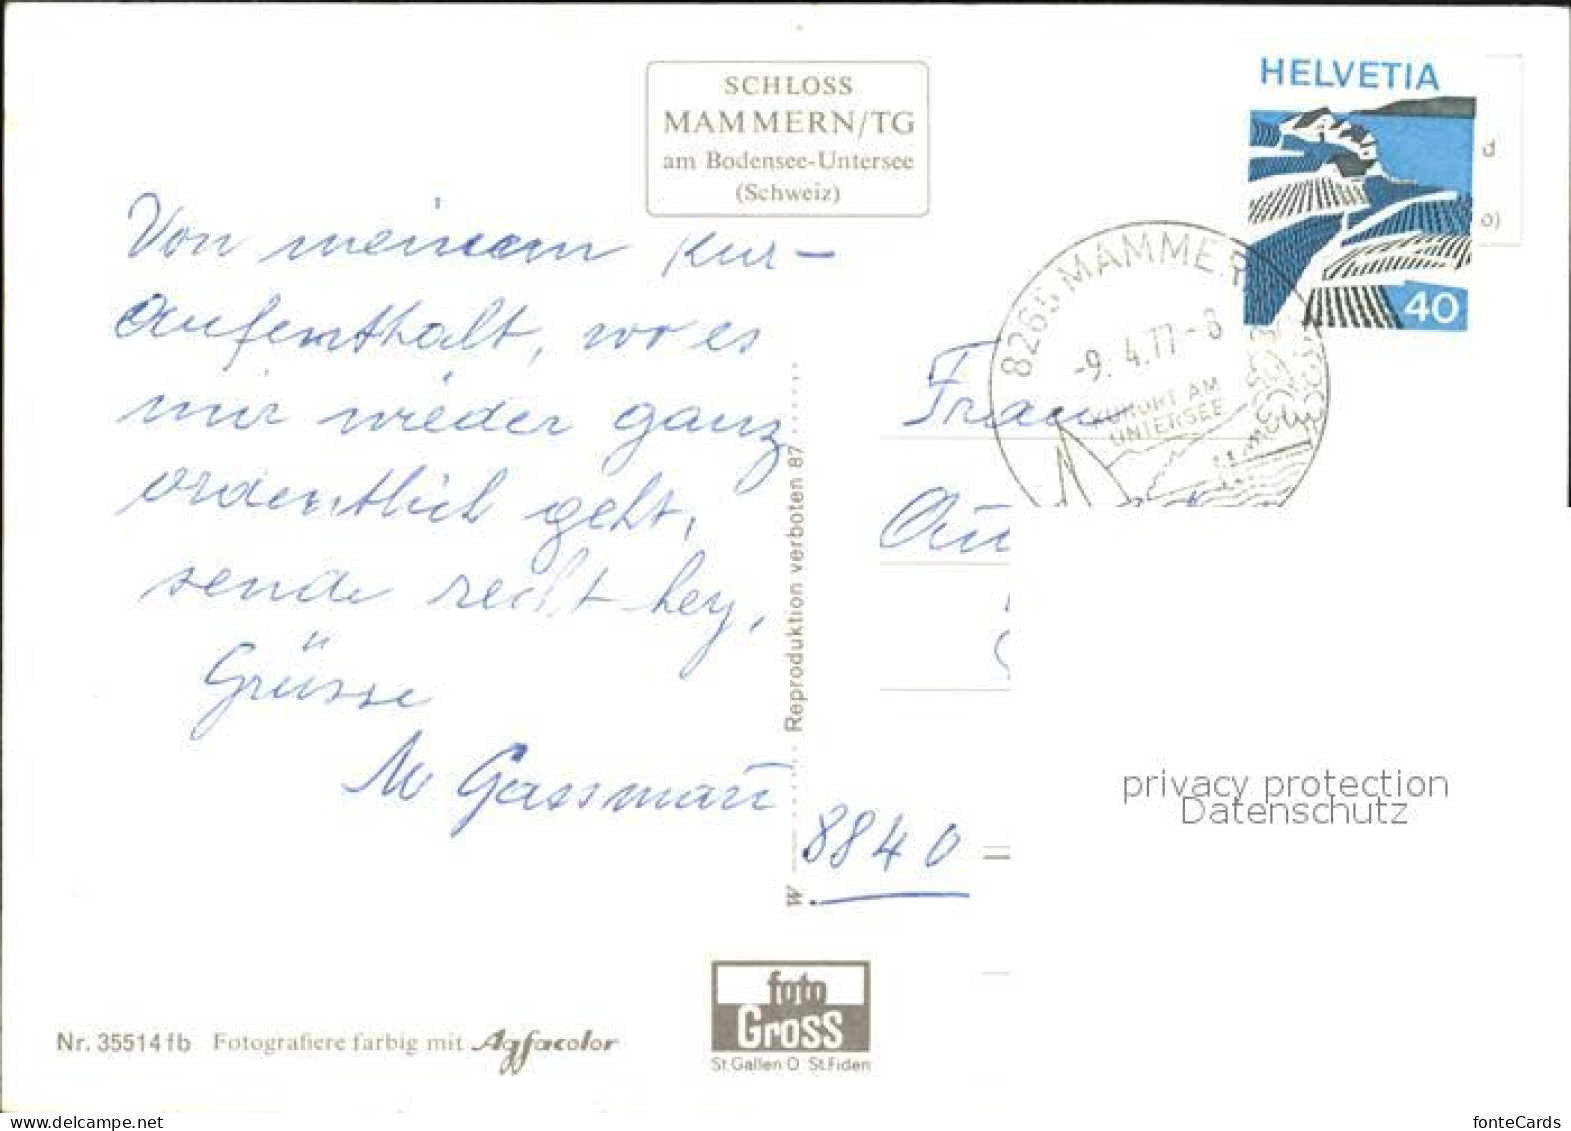 SCHLOSS
MAMMERN/TG
am Bodensee-Untersee
(Schweiz)
HELVETIA
40
d
o)
8265 MAMMER
-9. 4.77-8
KURORT AM
UNTERSEE
Von meinem Kur-
Aufenthalt, wo es
mir wieder ganz
ordentlich geht,
sende recht hey,
Grüsse
M Gassmañ
Frau
8840
Reproduktion verboten 87
W
privacy protection
Datenschutz
foto
Gross
St.Gallen O St.Fiden
Nr. 35514fb Fotografiere farbig mit Agfacolor
www.delcampe.net
fonteCards